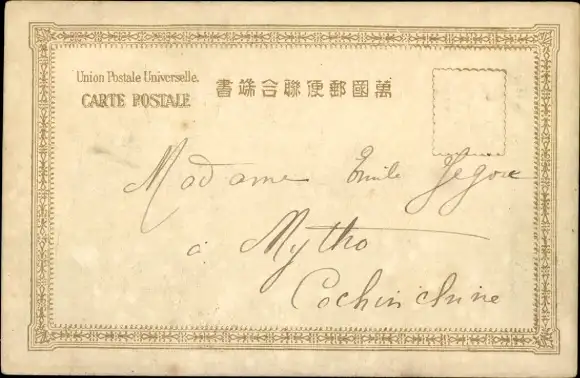 Union Postale Universelle.
CARTE POSTALE
書端合聯便郵國萬
Madame Emile Jégou
à Mytho
Cochinchine